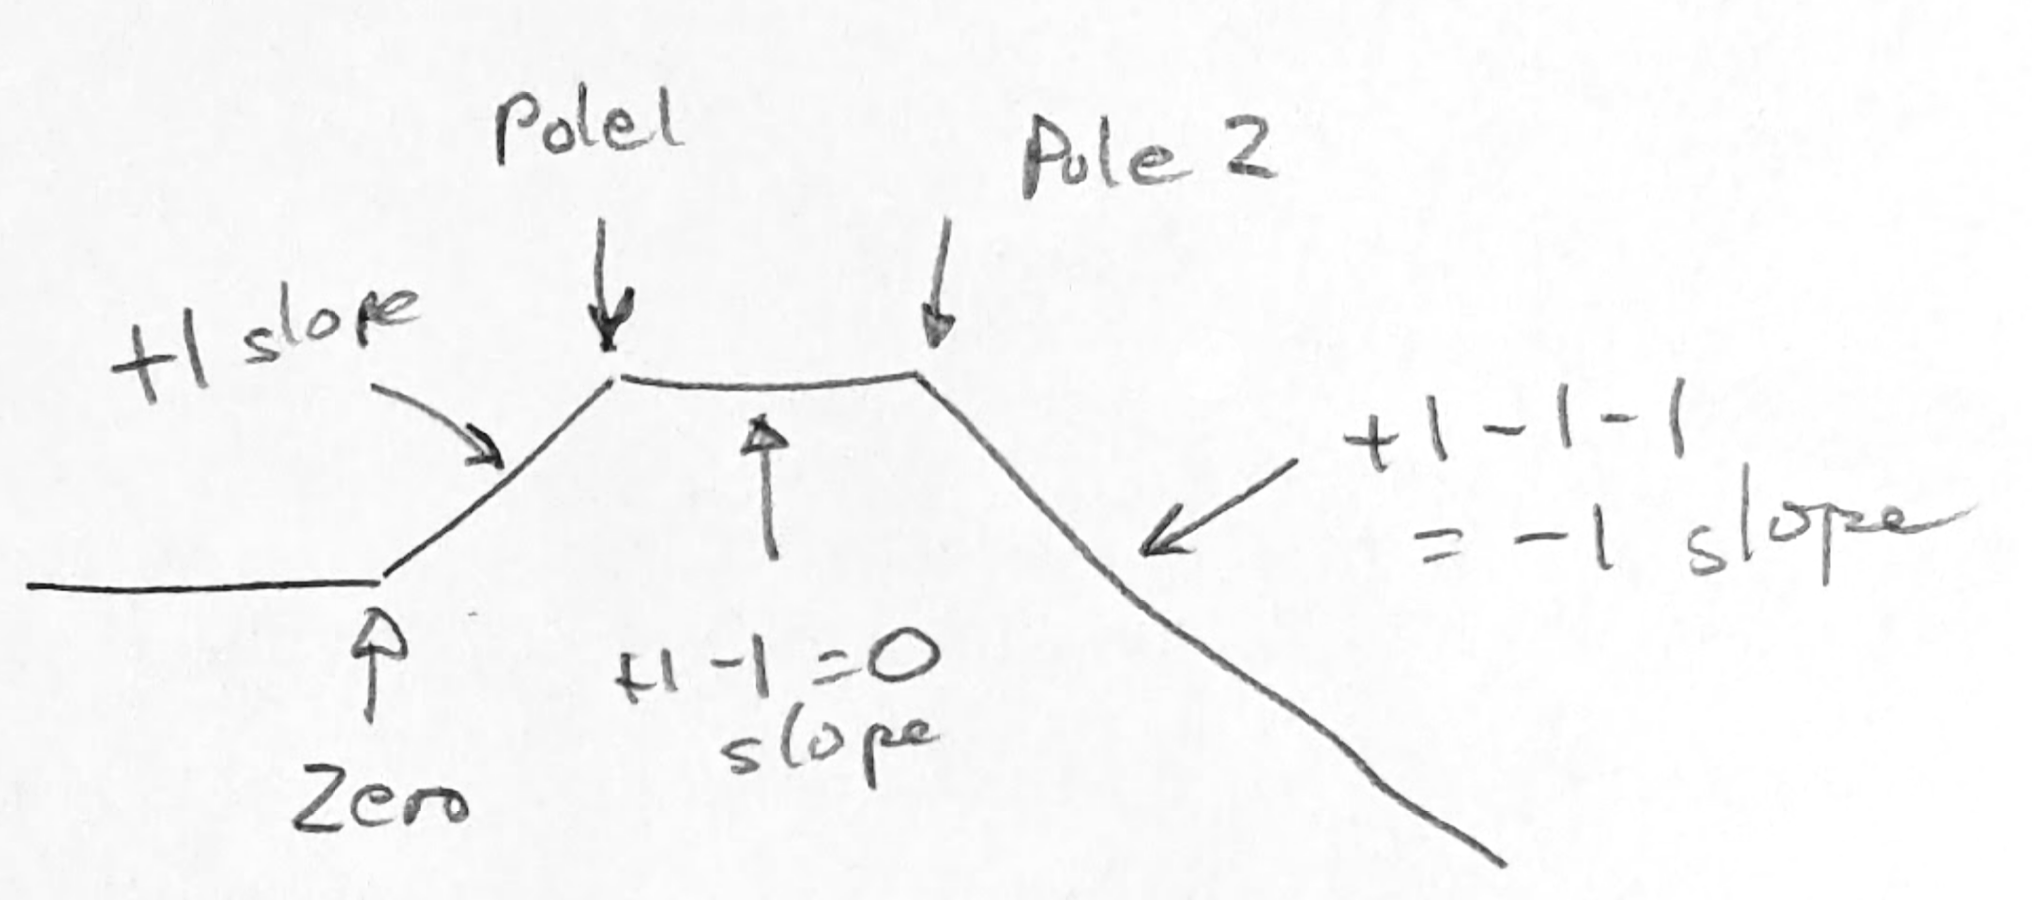 Pole1
Pole 2
+1 slope
+1 -1 -1
= -1 slope
+1 -1 = 0
slope
Zero